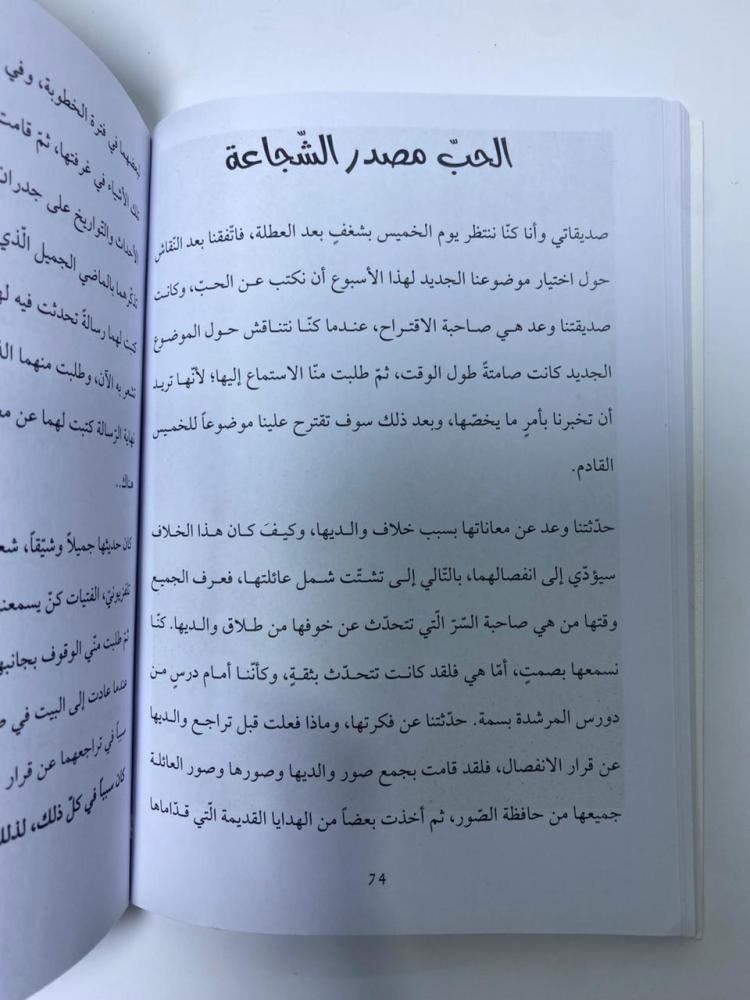 الحبّ مصدر الشّجاعة
صديقاتي وأنا كنّا ننتظر يوم الخميس بشغفٍ بعد العطلة، فاتّفقنا بعد النّقاش
حول اختيار موضوعنا الجديد لهذا الأسبوع أن نكتب عن الحبّ، وكانت
صديقتنا وعد هي صاحبة الاقتراح، عندما كنّا نتناقش حول الموضوع
الجديد كانت صامتةً طول الوقت، ثمّ طلبت منّا الاستماع إليها؛ لأنّها تريد
أن تخبرنا بأمرٍ ما يخصّها، وبعد ذلك سوف تقترح علينا موضوعاً للخميس
القادم.
حدّثتنا وعد عن معاناتها بسبب خلاف والديها، وكيفَ كان هذا الخلاف
سيؤدّي إلى انفصالهما، بالتّالي إلى تشتّت شمل عائلتها، فعرف الجميع
وقتها من هي صاحبة السّرّ الّتي تتحدّث عن خوفها من طلاق والديها. كنّا
نسمعها بصمتٍ، أمّا هي فلقد كانت تتحدّث بثقةٍ، وكأنّنا أمام درسٍ من
دورس المرشدة بسمة. حدّثتنا عن فكرتها، وماذا فعلت قبل تراجع والديها
عن قرار الانفصال، فلقد قامت بجمع صور والديها وصورها وصور العائلة
جميعها من حافظة الصّور، ثم أخذت بعضاً من الهدايا القديمة الّتي قدّماها
74
في فترة الخطوبة، وفي
الأشياء في غرفتها، ثمّ قامت
الأحداث والتّواريخ على جدران
تذكّرهما بالماضي الجميل الّذي
كتبت لهما رسالةً تحدثت فيه
تشعر به الآن، وطلبت منهما
نهاية الرّسالة كتبت لهما عن
هناك..
كان حديثها جميلاً وشيّقاً،
تلفزيونيّ، الفتيات كنّ يسمعن
ثمّ طلبت منّي الوقوف بجانبها
عندما عادت إلى البيت في
سبباً في تراجعهما عن قرار
كان سبباً في كلّ ذلك،